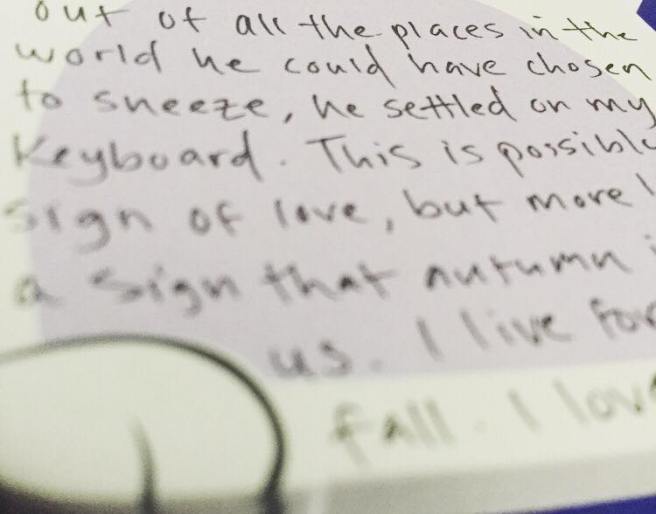 out of all the places in the
world he could have chosen
to sneeze, he settled on my
Keyboard. This is possible
sign of love, but more
a sign that autumn
us. I live for
fall. I love